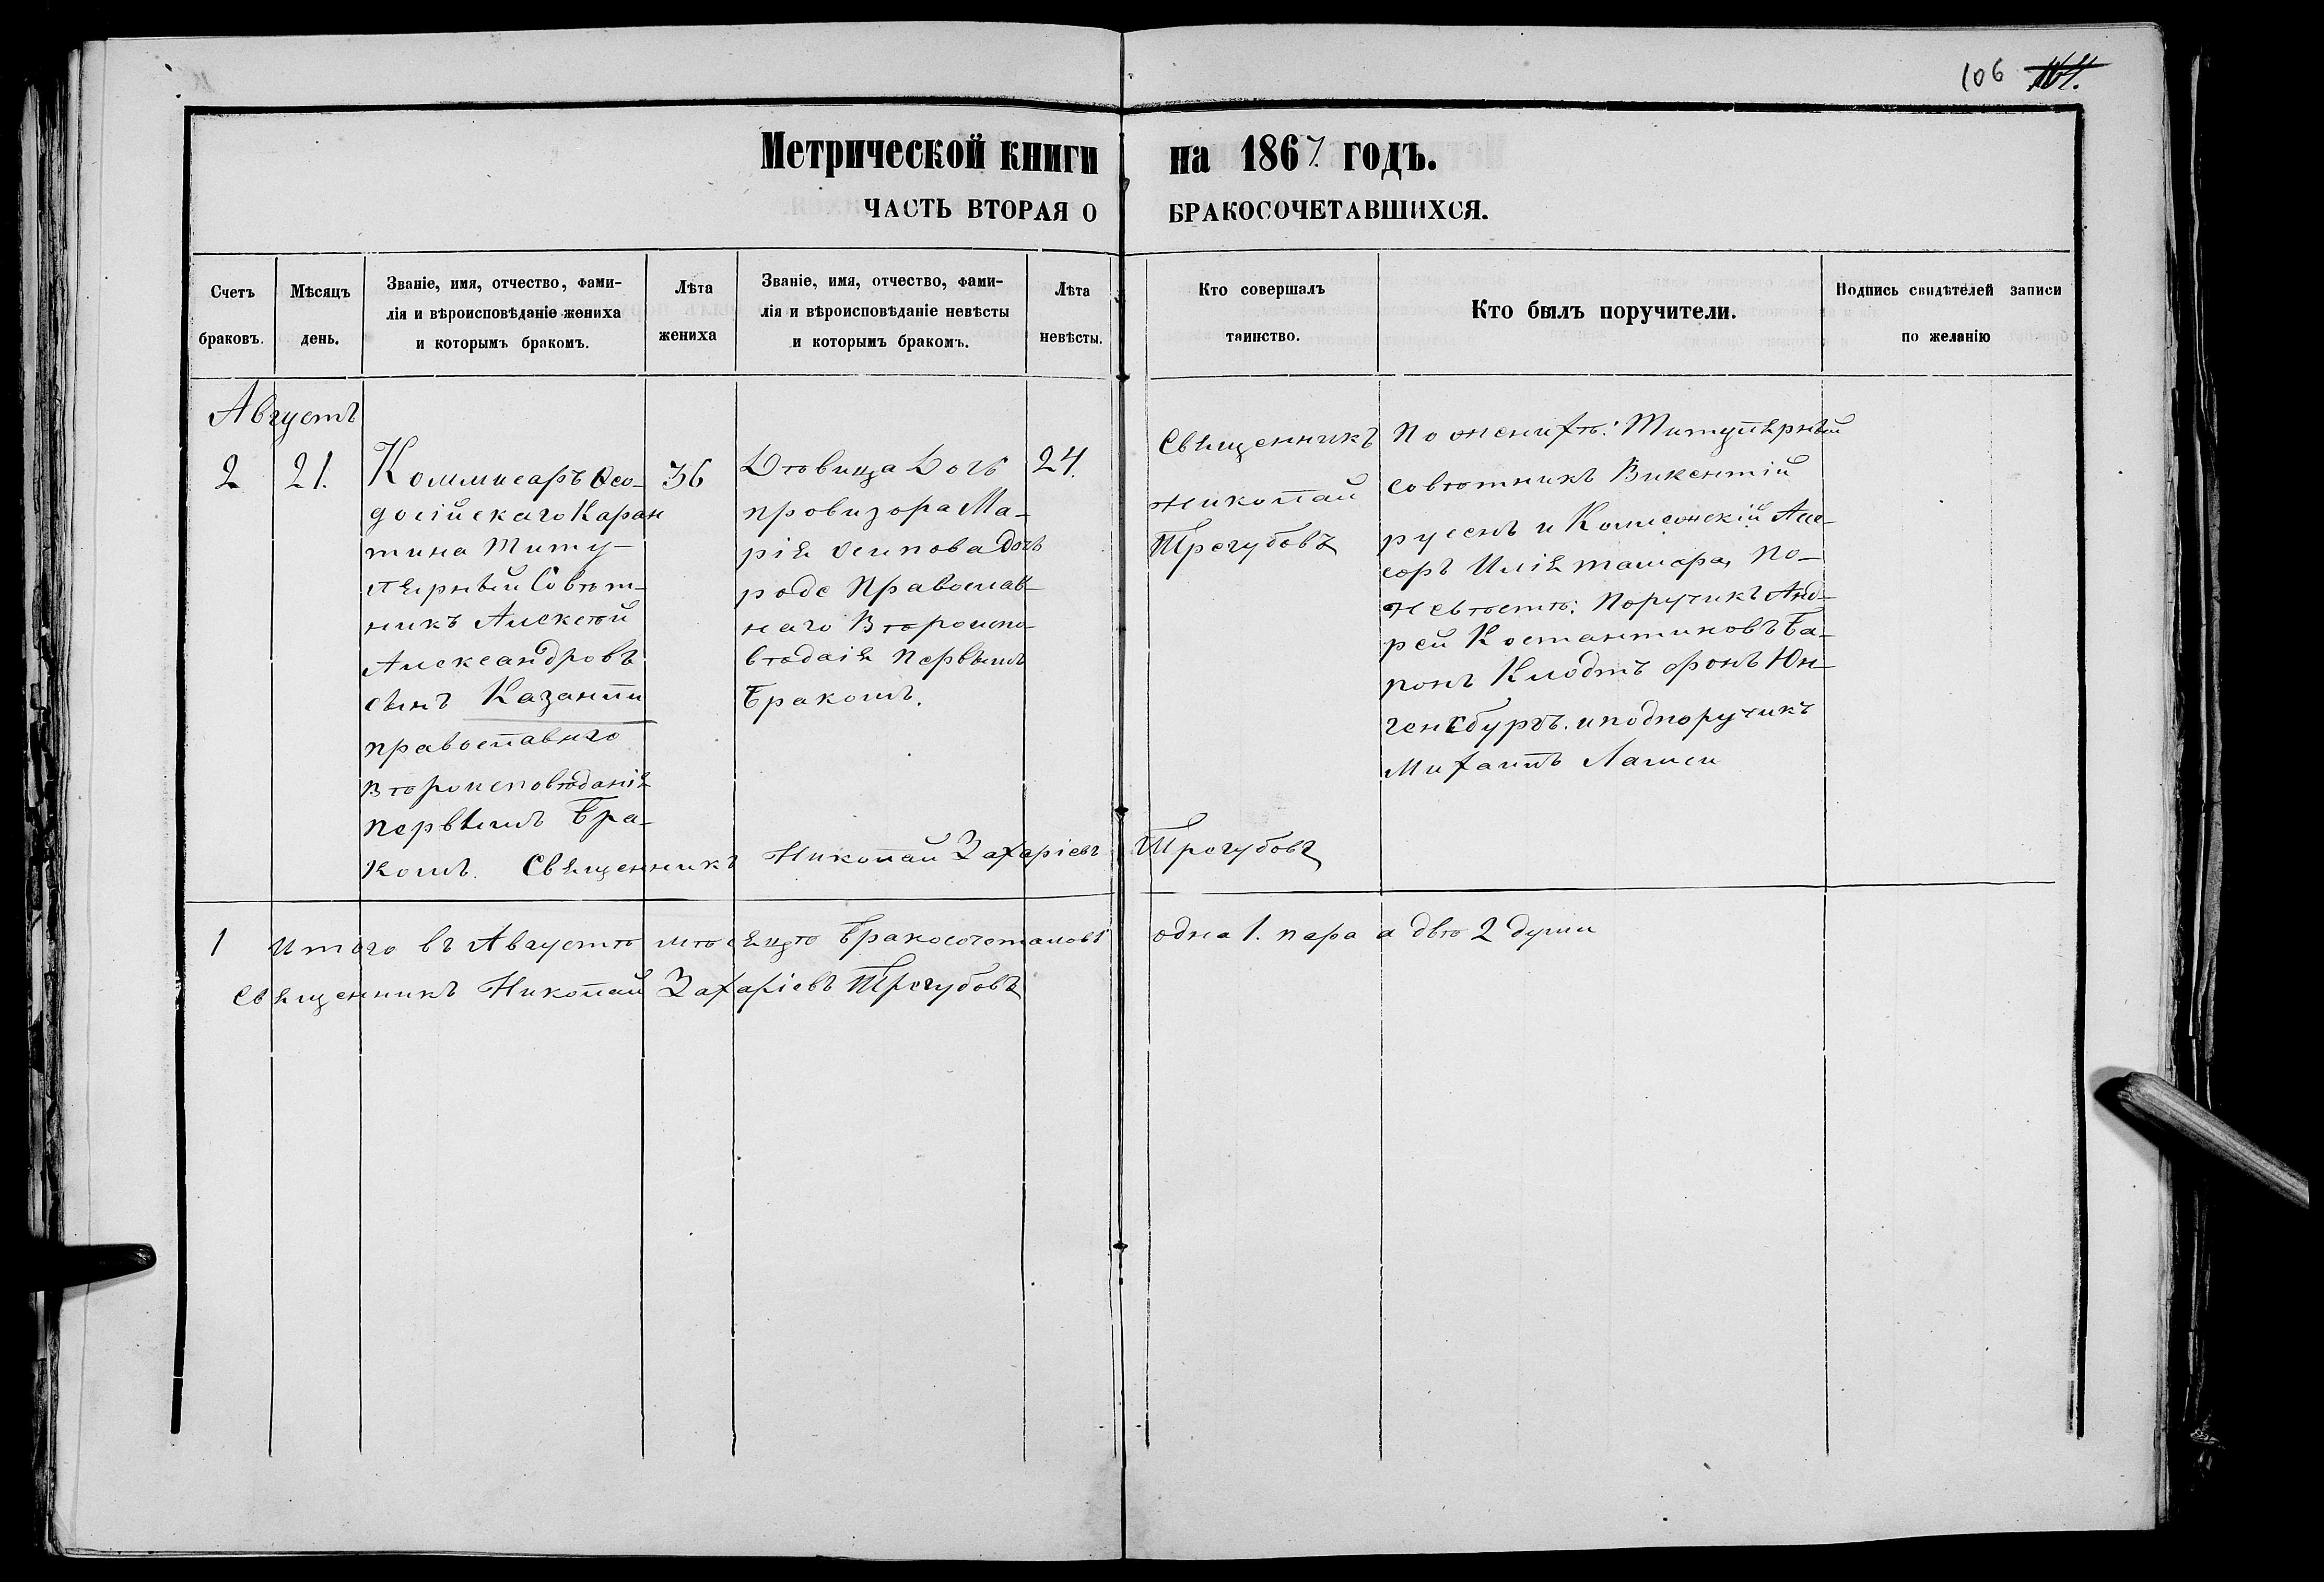 106 164.
Метрической книги на 1867. годъ.
ЧАСТЬ ВТОРАЯ О БРАКОСОЧЕТАВШИХСЯ.
Счетъ
браковъ.
Мѣсяцъ
день.
Званіе, имя, отчество, фами-
лія и вѣроисповѣданіе жениха
и которымъ бракомъ.
Лѣта
жениха
Званіе, имя, отчество, фами-
лія и вѣроисповѣданіе невѣсты
и которымъ бракомъ.
Лѣта
невѣсты.
Кто совершалъ
таинство.
Кто былъ поручители.
Подпись свидѣтелей записи
по желанію
Августъ
2
21.
Коммисаръ Ѳео-
досійскаго Каран
тина Титу-
лярный Совѣт-
никъ Алексѣй
Александровъ
сынъ Казанли
православнго
Вѣроисповѣданія
первымъ Бра-
комъ.
36
Дѣвица Дочь
провизора Ма-
рія Осипова Дочь
роде Православ-
наго Вѣроиспо-
вѣдаія первымъ
Бракомъ.
24.
Священникъ
Николай
Трегубовъ
По женихѣ: Титулярный
совѣтникъ Викентій
руссенъ и Колежскій Асе-
соръ Илія тамара, по-
невѣстѣ: Поручикъ Анд-
рей Костантиновъ Ба-
ронъ Клодтъ фонъ Юн-
генсбургъ. и подпоручикъ
Михаилъ Лагиси
Священникъ Николай Захаріевъ Трегубовъ
1 Итого въ Августѣ мѣсяцѣ бракосочетановъ одна 1. пара а двѣ 2 души
Священникъ Николай Захаріевъ Трегубовъ